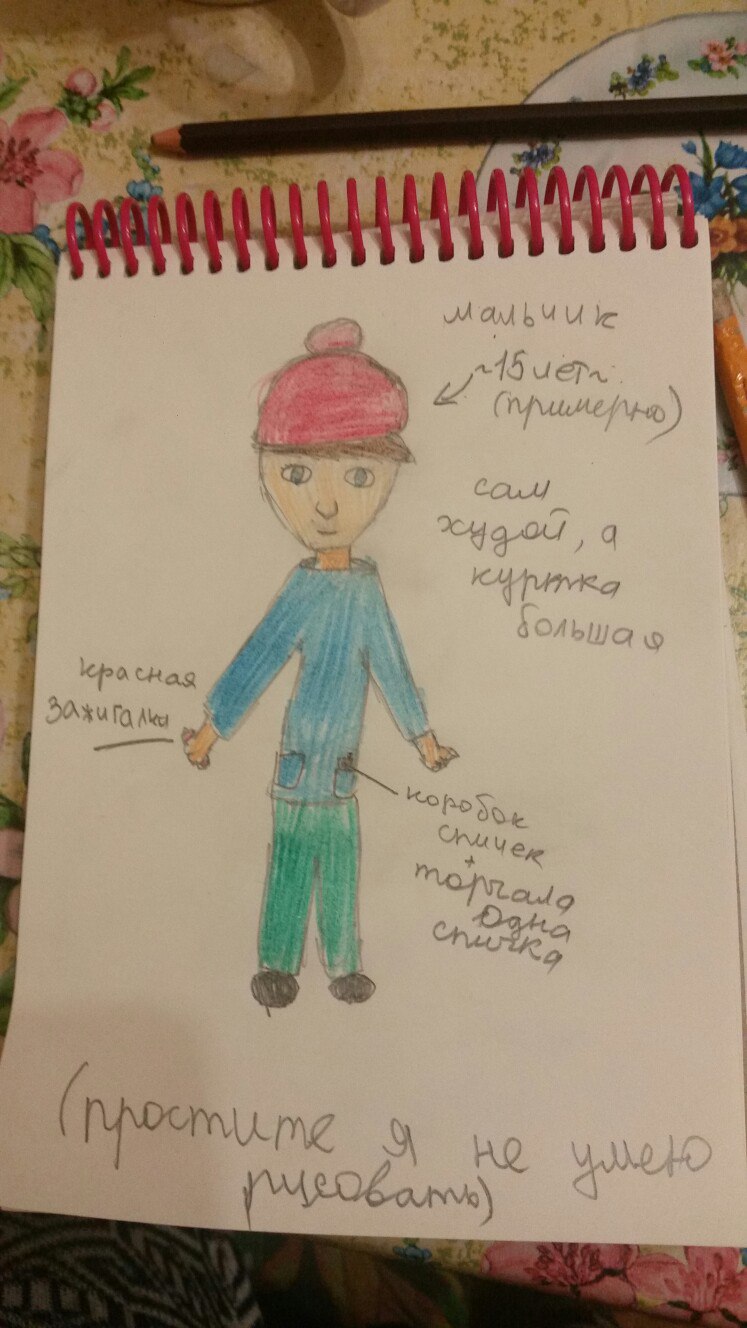 мальчик
~15 лет~
(примерно)
сам
худой, а
куртка
большая
красная
зажигалка
коробок
спичек
+
торчала
одна
спичка
(простите я не умею
рисовать)